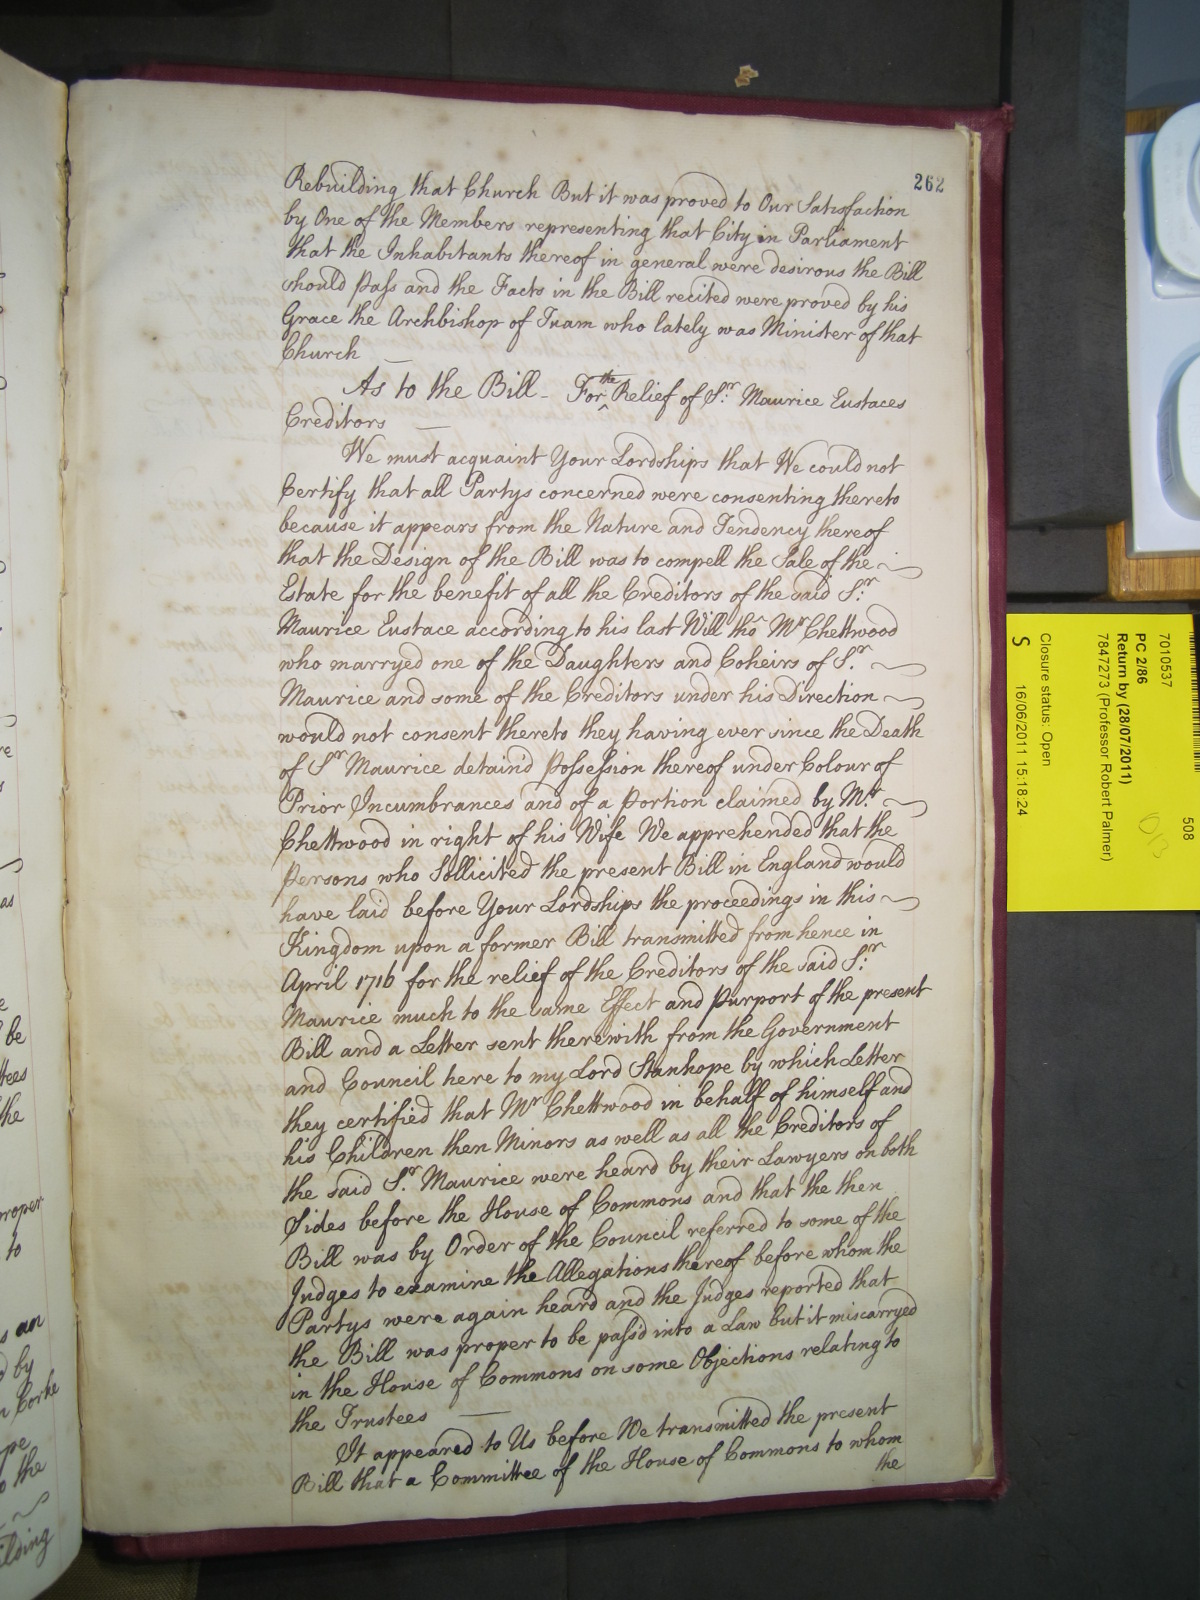 262
Rebuilding that Church But it was proved to Our Satisfaction
by One of the Members representing that City in Parliament
that the Inhabitants thereof in general were desirous the Bill
should Pass and the Facts in the Bill recited were proved by his
Grace the Archbishop of Tuam who lately was Minister of that
Church
As to the Bill - For the Relief of Sr. Maurice Eustaces
Creditors
We must acquaint Your Lordships that We could not
Certify that all Partys concerned were consenting thereto
because it appears from the Nature and Tendency thereof
that the Design of the Bill was to compell the Sale of the
Estate for the benefit of all the Creditors of the said Sr.
Maurice Eustace according to his last Will tho Mr Chettwood
who marryed one of the Daughters and Coheirs of Sr.
Maurice and some of the Creditors under his Direction
would not consent thereto they having ever since the Death
of Sr Maurice detain'd Possession thereof under Colour of
Prior Incumbrances and of a Portion claimed by Mr.
Chettwood in right of his Wife We apprehended that the
Persons who Sollicited the present Bill in England would
have laid before Your Lordships the proceedings in this
Kingdom upon a former Bill transmitted from hence in
April 1716 for the relief of the Creditors of the said Sr.
Maurice much to the same Effect and Purport of the present
Bill and a Letter sent therewith from the Government
and Council here to my Lord Stanhope by which Letter
they certified that Mr Chettwood in behalf of himself and
his Children then Minors as well as all the Creditors of
the said Sr. Maurice were heard by their Lawyers on both
Sides before the House of Commons and that the then
Bill was by Order of the Council referred to some of the
Judges to examine the Allegations thereof before whom the
Partys were again heard and the Judges reported that
the Bill was proper to be pass'd into a Law but it miscarryed
in the House of Commons on some Objections relating to
the Trustees
It appeared to Us before We transmitted the present
Bill that a Committee of the House of Commons to whom
the
7010537 508
PC 2/86
Return by (28/07/2011)
7847273 (Professor Robert Palmer)
Closure status: Open
S 16/06/2011 15:18:24
as
be
the
roper
to
an
by
Corke
the